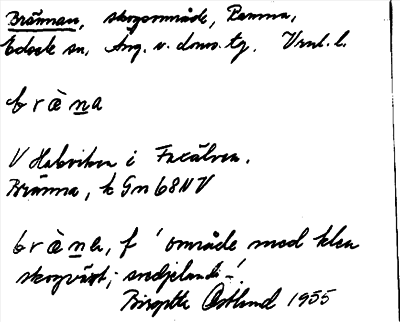 Brännan, skogsområde, Ramna,
Edsele sn, Ång. v. doms. tg, Vrml. l.
bràna
V Halvviken i Faxälven.
Bränna, k Gn 68 NV
bràna, f ' område med klen
skogväxt; svedjeland - '.
Birgitta Östlund 1955